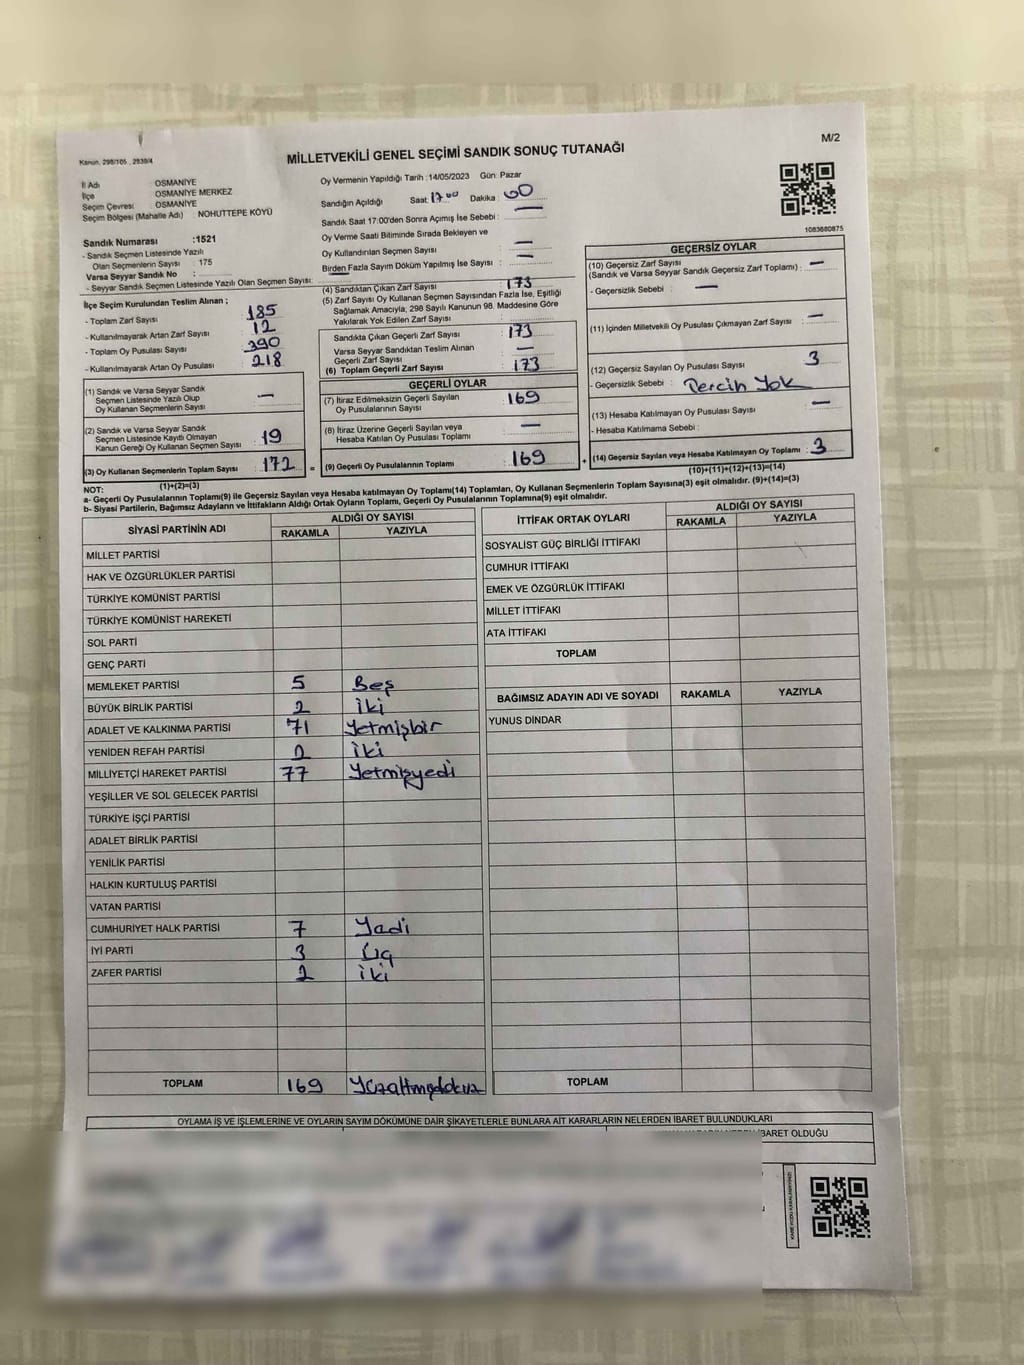 M/2
Kanun, 298/105 , 2839/4
MİLLETVEKİLİ GENEL SEÇİMİ SANDIK SONUÇ TUTANAĞI
İl Adı OSMANİYE
İlçe OSMANİYE MERKEZ
Seçim Çevresi OSMANİYE
Seçim Bölgesi (Mahalle Adı) : NOHUTTEPE KÖYÜ
Sandık Numarası :1521
- Sandık Seçmen Listesinde Yazılı
Olan Seçmenlerin Sayısı : 175
Varsa Seyyar Sandık No :
- Seyyar Sandık Seçmen Listesinde Yazılı Olan Seçmen Sayısı:
İlçe Seçim Kurulundan Teslim Alınan ;
- Toplam Zarf Sayısı : 185
- Kullanılmayarak Artan Zarf Sayısı : 12
- Toplam Oy Pusulası Sayısı : 390
- Kullanılmayarak Artan Oy Pusulası : 218
(1) Sandık ve Varsa Seyyar Sandık
Seçmen Listesinde Yazılı Olup
Oy Kullanan Seçmenlerin Sayısı : —
(2) Sandık ve Varsa Seyyar Sandık
Seçmen Listesinde Kayıtlı Olmayan
Kanun Gereği Oy Kullanan Seçmen Sayısı : 19
(3) Oy Kullanan Seçmenlerin Toplam Sayısı : 172
(1)+(2)=(3)
Oy Vermenin Yapıldığı Tarih : 14/05/2023 Gün: Pazar
Sandığın Açıldığı Saat: 17.00 Dakika : 00
Sandık Saat 17:00'den Sonra Açımış İse Sebebi : —
Oy Verme Saati Bitiminde Sırada Bekleyen ve
Oy Kullandırılan Seçmen Sayısı : —
Birden Fazla Sayım Döküm Yapılmış İse Sayısı : —
(4) Sandıktan Çıkan Zarf Sayısı : 173
(5) Zarf Sayısı Oy Kullanan Seçmen Sayısından Fazla İse, Eşitliği
Sağlamak Amacıyla, 298 Sayılı Kanunun 98. Maddesine Göre
Yakılarak Yok Edilen Zarf Sayısı :
Sandıkta Çıkan Geçerli Zarf Sayısı : 173
Varsa Seyyar Sandıktan Teslim Alınan
Geçerli Zarf Sayısı : —
(6) Toplam Geçerli Zarf Sayısı : 173
GEÇERLİ OYLAR
(7) İtiraz Edilmeksizin Geçerli Sayılan
Oy Pusulalarının Sayısı : 169
(8) İtiraz Üzerine Geçerli Sayılan veya
Hesaba Katılan Oy Pusulası Toplamı : —
= (9) Geçerli Oy Pusulalarının Toplamı : 169
1083680875
GEÇERSİZ OYLAR
(10) Geçersiz Zarf Sayısı
(Sandık ve Varsa Seyyar Sandık Geçersiz Zarf Toplamı) : —
- Geçersizlik Sebebi : —
(11) İçinden Milletvekili Oy Pusulası Çıkmayan Zarf Sayısı : —
(12) Geçersiz Sayılan Oy Pusulası Sayısı : 3
- Geçersizlik Sebebi : Dercih Yok
(13) Hesaba Katılmayan Oy Pusulası Sayısı : —
- Hesaba Katılmama Sebebi :
+ (14) Geçersiz Sayılan veya Hesaba Katılmayan Oy Toplamı : 3
(10)+(11)+(12)+(13)=(14)
NOT:
a- Geçerli Oy Pusulalarının Toplamı(9) ile Geçersiz Sayılan veya Hesaba katılmayan Oy Toplamı(14) Toplamları, Oy Kullanan Seçmenlerin Toplam Sayısına(3) eşit olmalıdır. (9)+(14)=(3)
b- Siyasi Partilerin, Bağımsız Adayların ve İttifakların Aldığı Ortak Oyların Toplamı, Geçerli Oy Pusulalarının Toplamına(9) eşit olmalıdır.
SİYASİ PARTİNİN ADI ALDIĞI OY SAYISI
RAKAMLA YAZIYLA
MİLLET PARTİSİ
HAK VE ÖZGÜRLÜKLER PARTİSİ
TÜRKİYE KOMÜNİST PARTİSİ
TÜRKİYE KOMÜNİST HAREKETİ
SOL PARTİ
GENÇ PARTİ
MEMLEKET PARTİSİ 5 Beş
BÜYÜK BİRLİK PARTİSİ 2 iki
ADALET VE KALKINMA PARTİSİ 71 Yetmişbir
YENİDEN REFAH PARTİSİ 2 iki
MİLLİYETÇİ HAREKET PARTİSİ 77 Yetmişyedi
YEŞİLLER VE SOL GELECEK PARTİSİ
TÜRKİYE İŞÇİ PARTİSİ
ADALET BİRLİK PARTİSİ
YENİLİK PARTİSİ
HALKIN KURTULUŞ PARTİSİ
VATAN PARTİSİ
CUMHURİYET HALK PARTİSİ 7 Yadi
İYİ PARTİ 3 Üç
ZAFER PARTİSİ 2 iki
TOPLAM 169 Yüzaltmışdokuz
İTTİFAK ORTAK OYLARI ALDIĞI OY SAYISI
RAKAMLA YAZIYLA
SOSYALİST GÜÇ BİRLİĞİ İTTİFAKI
CUMHUR İTTİFAKI
EMEK VE ÖZGÜRLÜK İTTİFAKI
MİLLET İTTİFAKI
ATA İTTİFAKI
TOPLAM
BAĞIMSIZ ADAYIN ADI VE SOYADI RAKAMLA YAZIYLA
YUNUS DİNDAR
TOPLAM
OYLAMA İŞ VE İŞLEMLERİNE VE OYLARIN SAYIM DÖKÜMÜNE DAİR ŞİKAYETLERLE BUNLARA AİT KARARLARIN NELERDEN İBARET BULUNDUKLARI
İBARET OLDUĞU